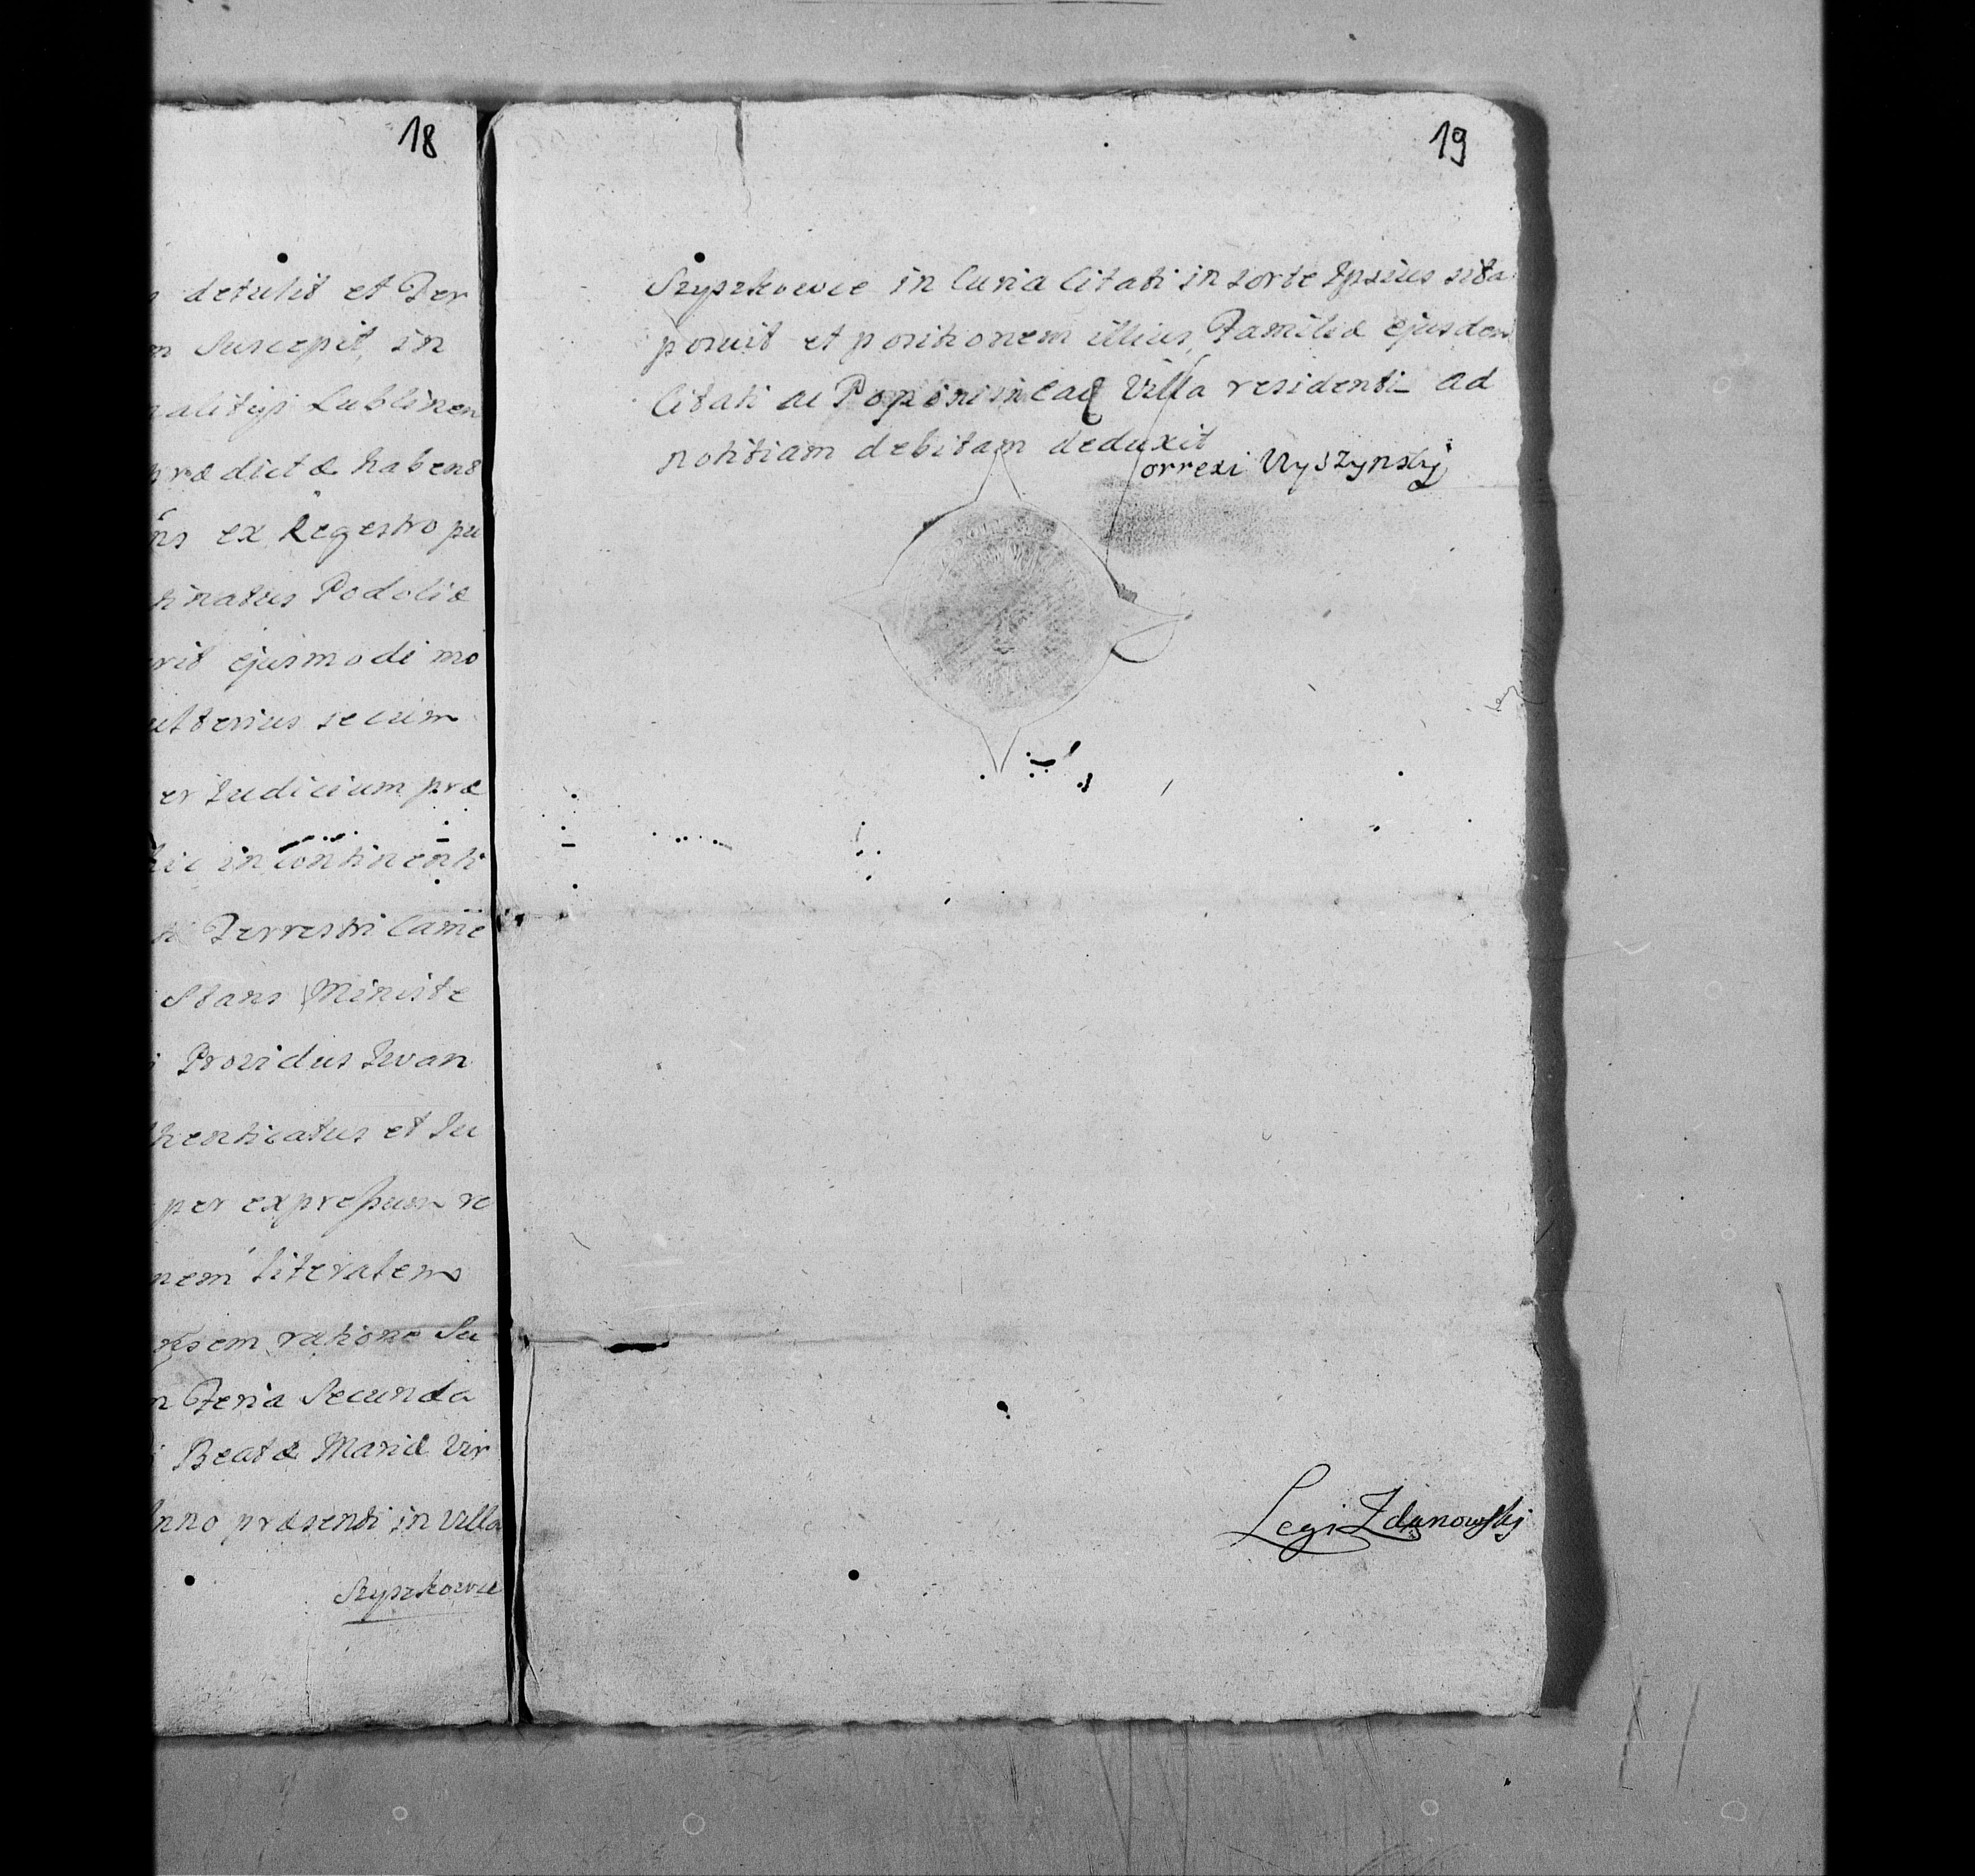 18
detulit et Per
Suscepit, in
Lublinen
prædictæ habens
ex Regestro pu
Podoliæ
ejusmodi mo
ulterius secum
er Iudicium præ
hic in Continenti
Terrestri Came
Stans Ministe
Providus Iwan
thenticatus et Iu
per expressum re
nem literatem
ratione Su
Feria Secunda
Beatæ Mariæ Vir
Anno præsenti in Villa
Szyszkowce
19
Szyszkowce in Curia Citati in sorte Ipsius sita
posuit et positionem illius, Familiæ ejusdem
Citati ac Popini in eaq Villa residenti ad
notitiam debitam deduxit
Correxi Wyszynskj
Legi Zdanowskj